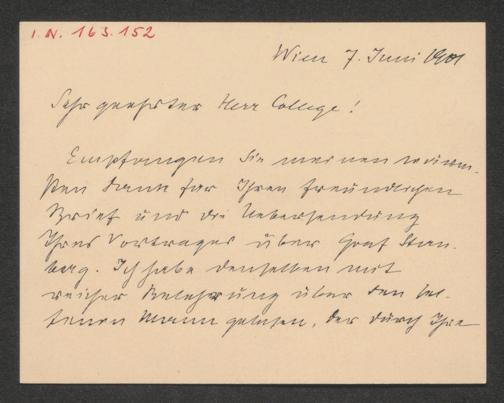 I. N. 163.152
Wien 7. Juni 1901
Sehr geehrter Herr College!
Empfangen Sie meinen wärm-
sten Dank für Ihren freundlichen
Brief und die Uebersendung
Ihres Vortrages über Graf Stern-
berg. Ich habe denselben mit
reicher Belehrung über den sel-
tenen Mann gelesen, der durch Ihre